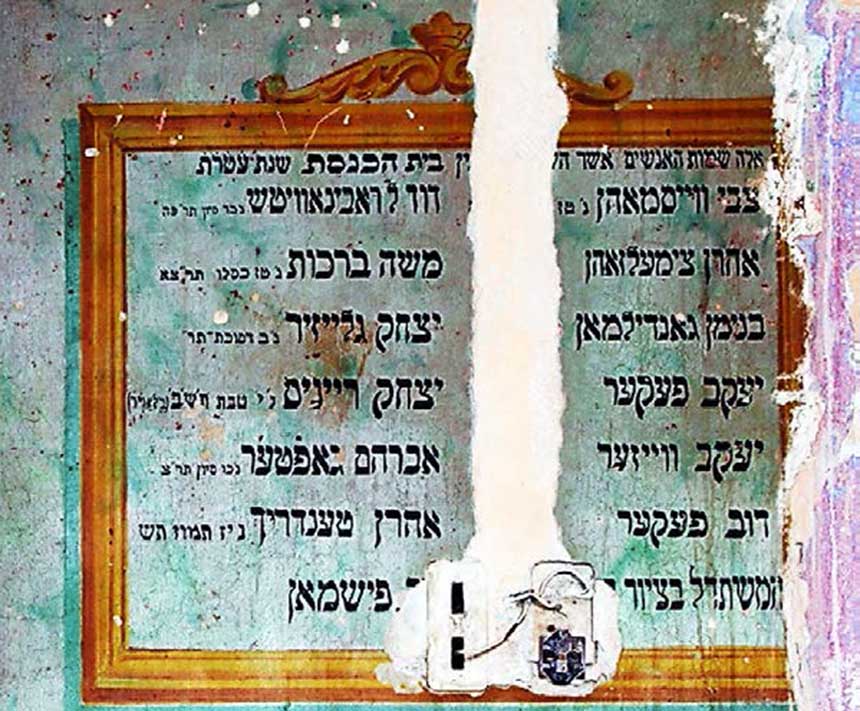 אלה שמות האנשים אשר בית הכנסת שנת עטרת
צבי ווייסמאהן נ' טז דוד לׄ ראבינאוויטש נ כד סיון תר"פה
אהרן צימעלזאהן משה ברכות נ' טז כסלו תר"צא
בנימן גאנדילמאן יצחק גלייזיר
יעקב פעקער יצחק רייניס נ' י' טבת תש"ב
יעקב ווייזער אברהם גאפטער נ כו סיון תר"צ
דוב פעקער אהרן טענדריך נ' יז תמוז תש
המשתדל בציור פישמאן